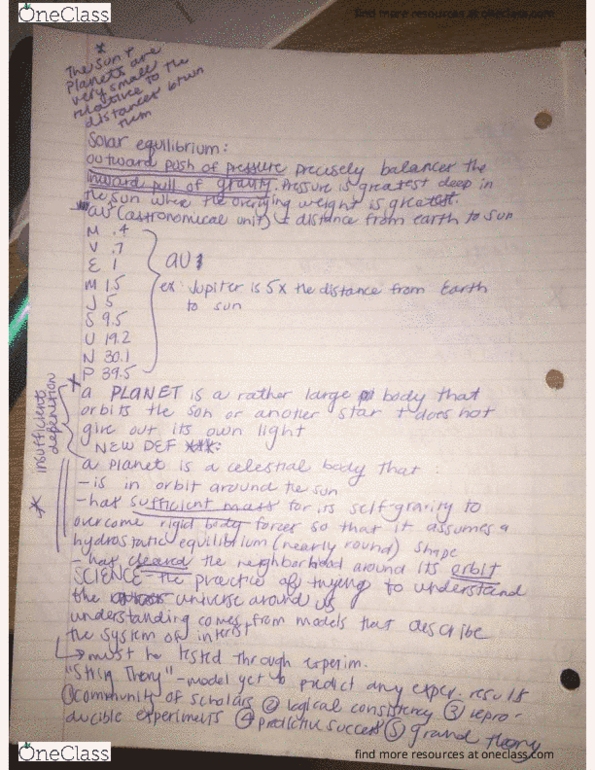 OneClass
find more resources at oneclass.com
The Sun +
Planets are
very small
relative to the
distances btwn
them
Solar equilibrium:
outward push of pressure precisely balances the
inward pull of gravity. Pressure is greatest deep in
the sun where the overlying weight is greatest.
au (astronomical unit) distance from earth to sun
M .4
V .7
E 1
M 1.5
J 5
S 9.5
U 19.2
N 30.1
P 39.5
au
ex: Jupiter is 5x the distance from Earth
to sun
insufficient definition
a PLANET is a rather large body that
orbits the son or another star + does not
give out its own light
NEW DEF ***:
a Planet is a celestial body that:
- is in orbit around the sun
- has sufficient mass for its self-gravity to
overcome rigid body forces so that it assumes a
hydrostatic equilibrium (nearly round) shape
- has cleared the neighborhood around its orbit
SCIENCE - the practice of trying to understand
the universe around us
understanding comes from models that describe
the system of interest
→ must be tested through experim.
"String Theory" - model yet to predict any exper. results
① community of scholars ② logical consistency ③ repro-
ducible experiments ④ predictive success ⑤ grand theory
OneClass
find more resources at oneclass.com